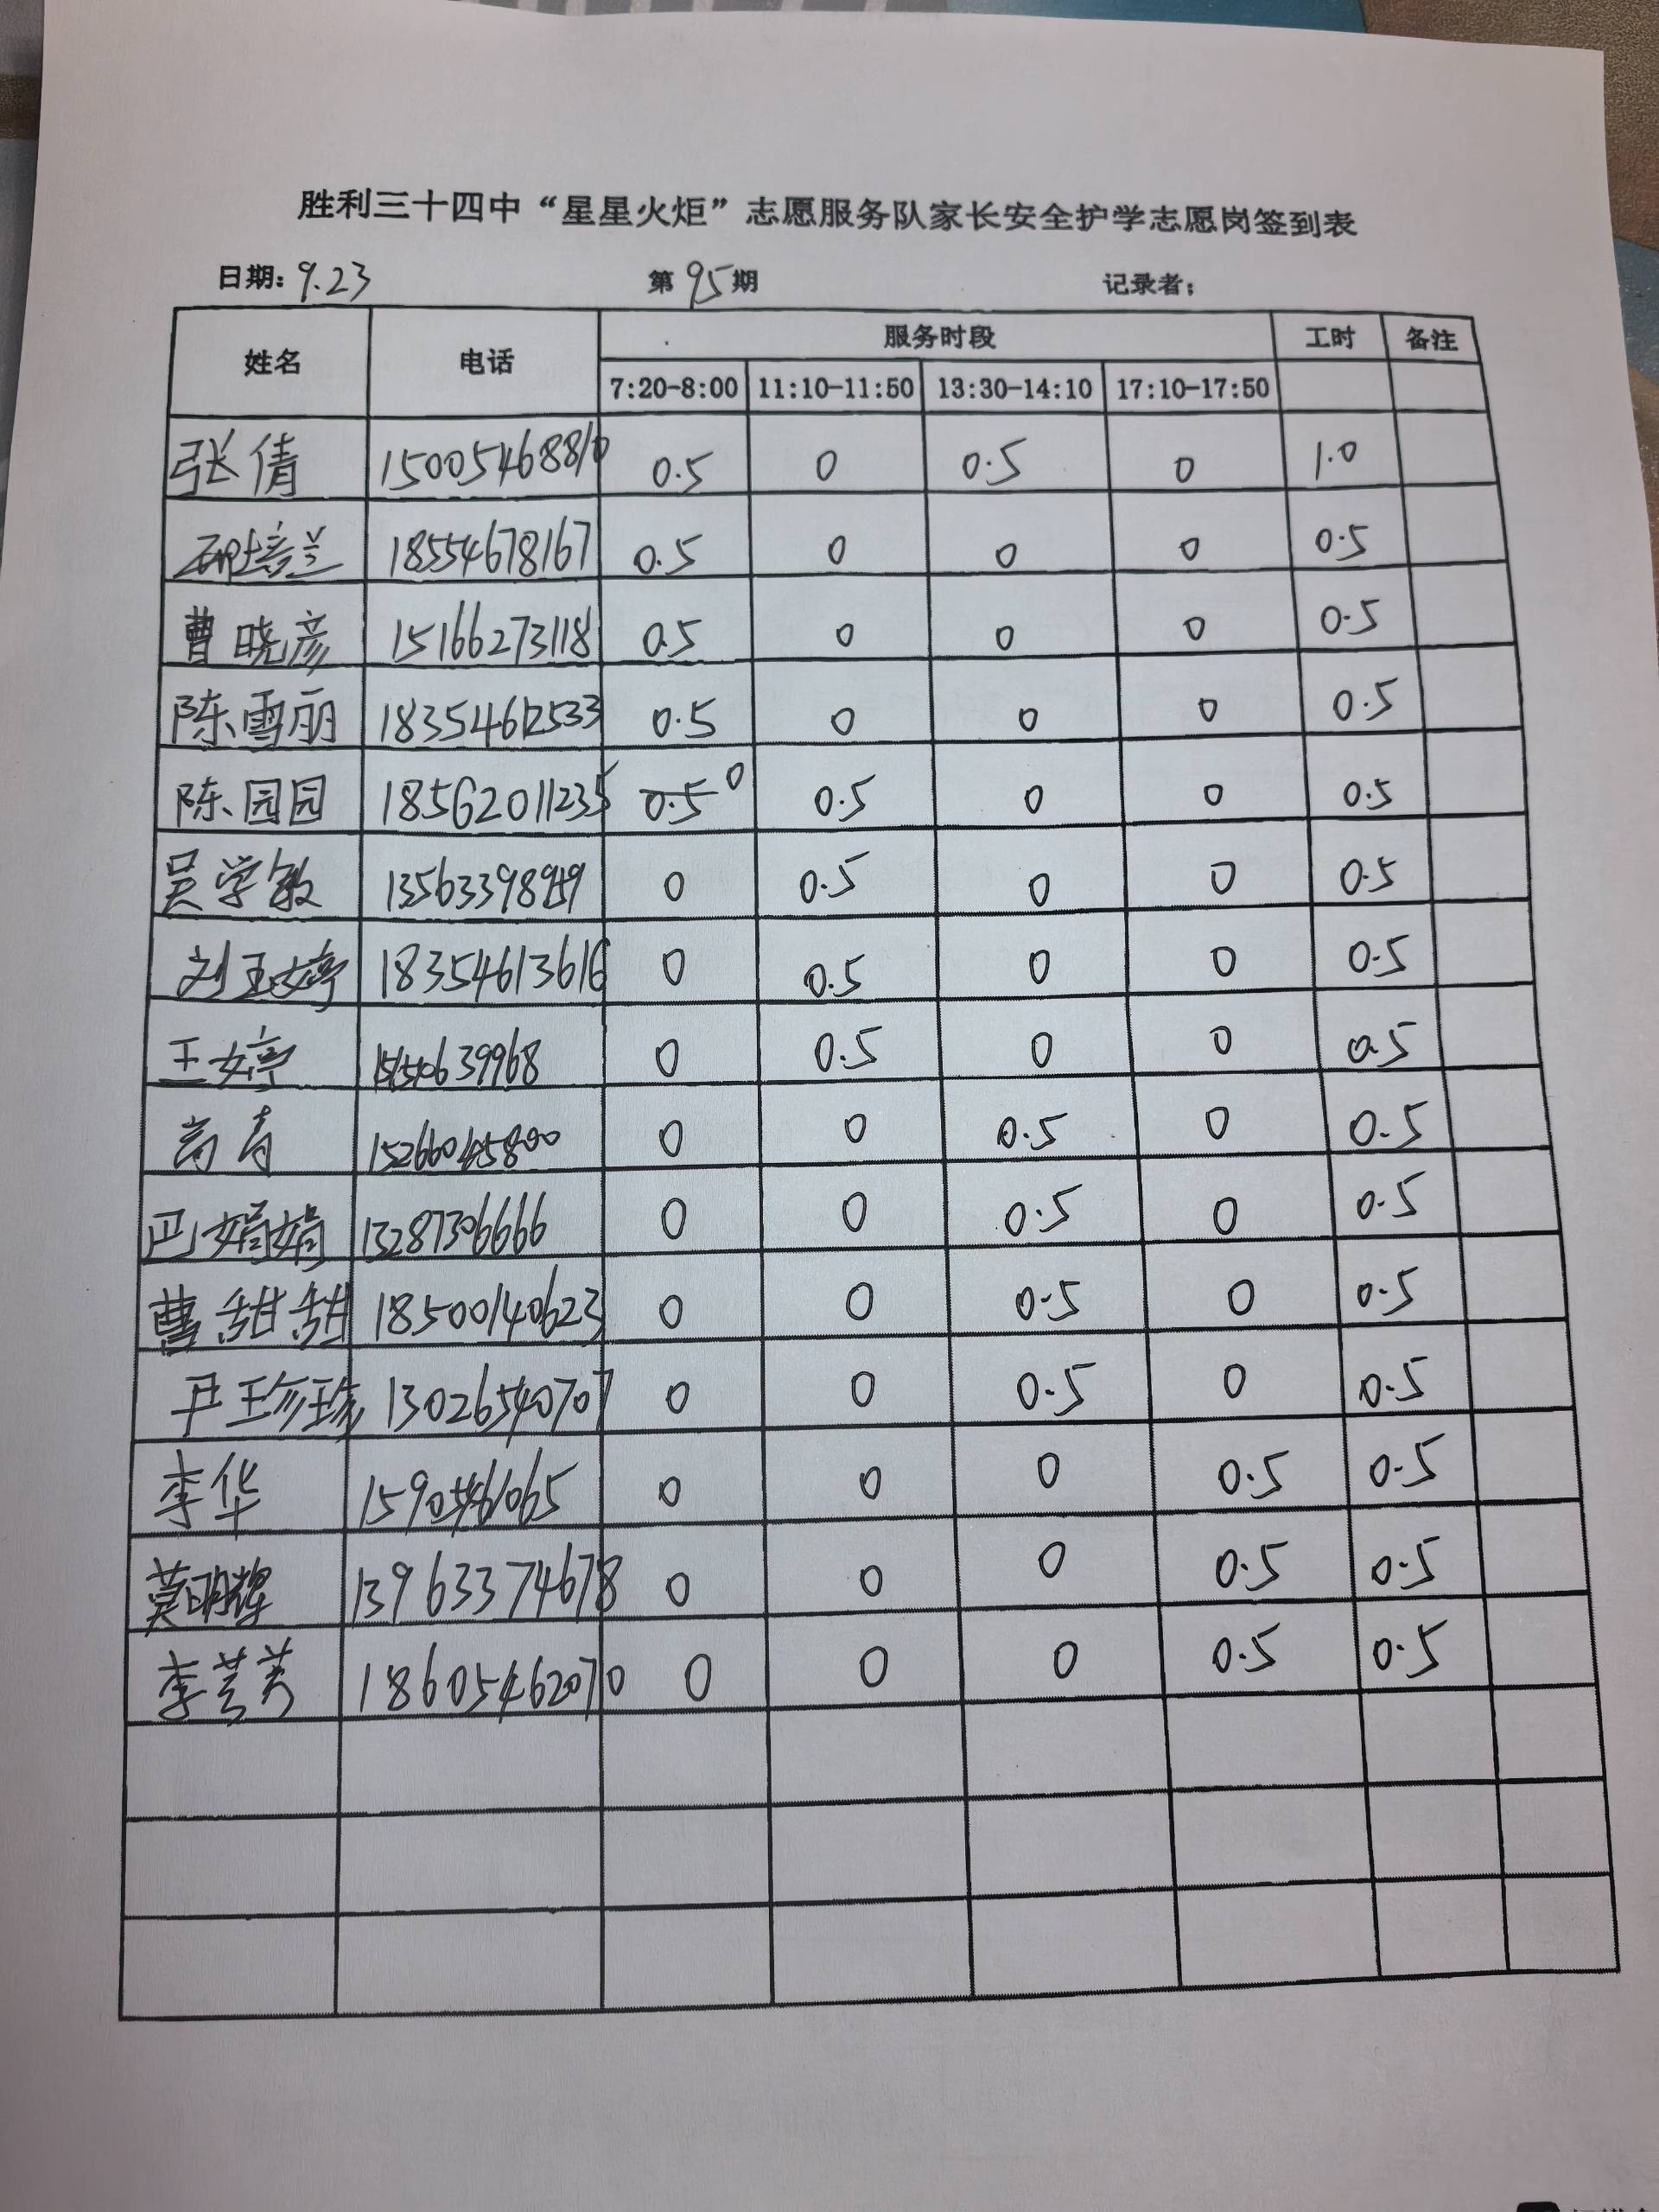 胜利三十四中“星星火炬”志愿服务队家长安全护学志愿岗签到表
日期: 9.23 第95期 记录者:
姓名 电话 服务时段 工时 备注
7:20-8:00 11:10-11:50 13:30-14:10 17:10-17:50
张倩 15005468810 0.5 0 0.5 0 1.0
培兰 18554678167 0.5 0 0 0 0.5
曹晓彦 15166273118 0.5 0 0 0 0.5
陈雪丽 18354612533 0.5 0 0 0 0.5
陈园园 18562011235 0.5 0 0.5 0 0 0.5
吴学敏 0 0.5 0 0 0.5
刘玉婷 18354613616 0 0.5 0 0 0.5
王婷 0 0.5 0 0 0.5
高青 0 0 0.5 0 0.5
巴娟娟 13287306666 0 0 0.5 0 0.5
曹甜甜 18500140623 0 0 0.5 0 0.5
尹珍珠 13026540707 0 0 0.5 0 0.5
李华 0 0 0 0.5 0.5
莫明辉 13963374678 0 0 0 0.5 0.5
李芸芳 18605462070 0 0 0 0.5 0.5